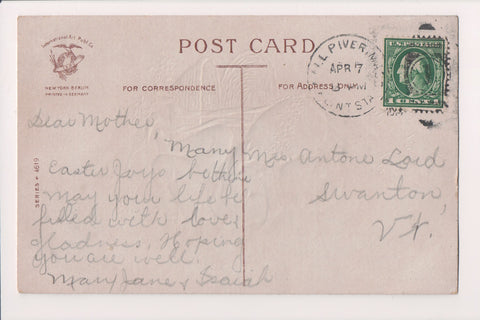 International Art Publ Co.
NEW YORK BERLIN
PRINTED IN GERMANY
POST CARD
FOR CORRESPONDENCE
FOR ADDRESS ONLY
SERIES № 4619
APR 7
U.S. POSTAGE
1 CENT 1
Dear Mother,
Many
Easter Joys be thine
may your life be
filled with love,
gladness. Hoping
you are well.
Mary Jane & Isaiah
Mrs Antone Loid
Swanton,
Vt,